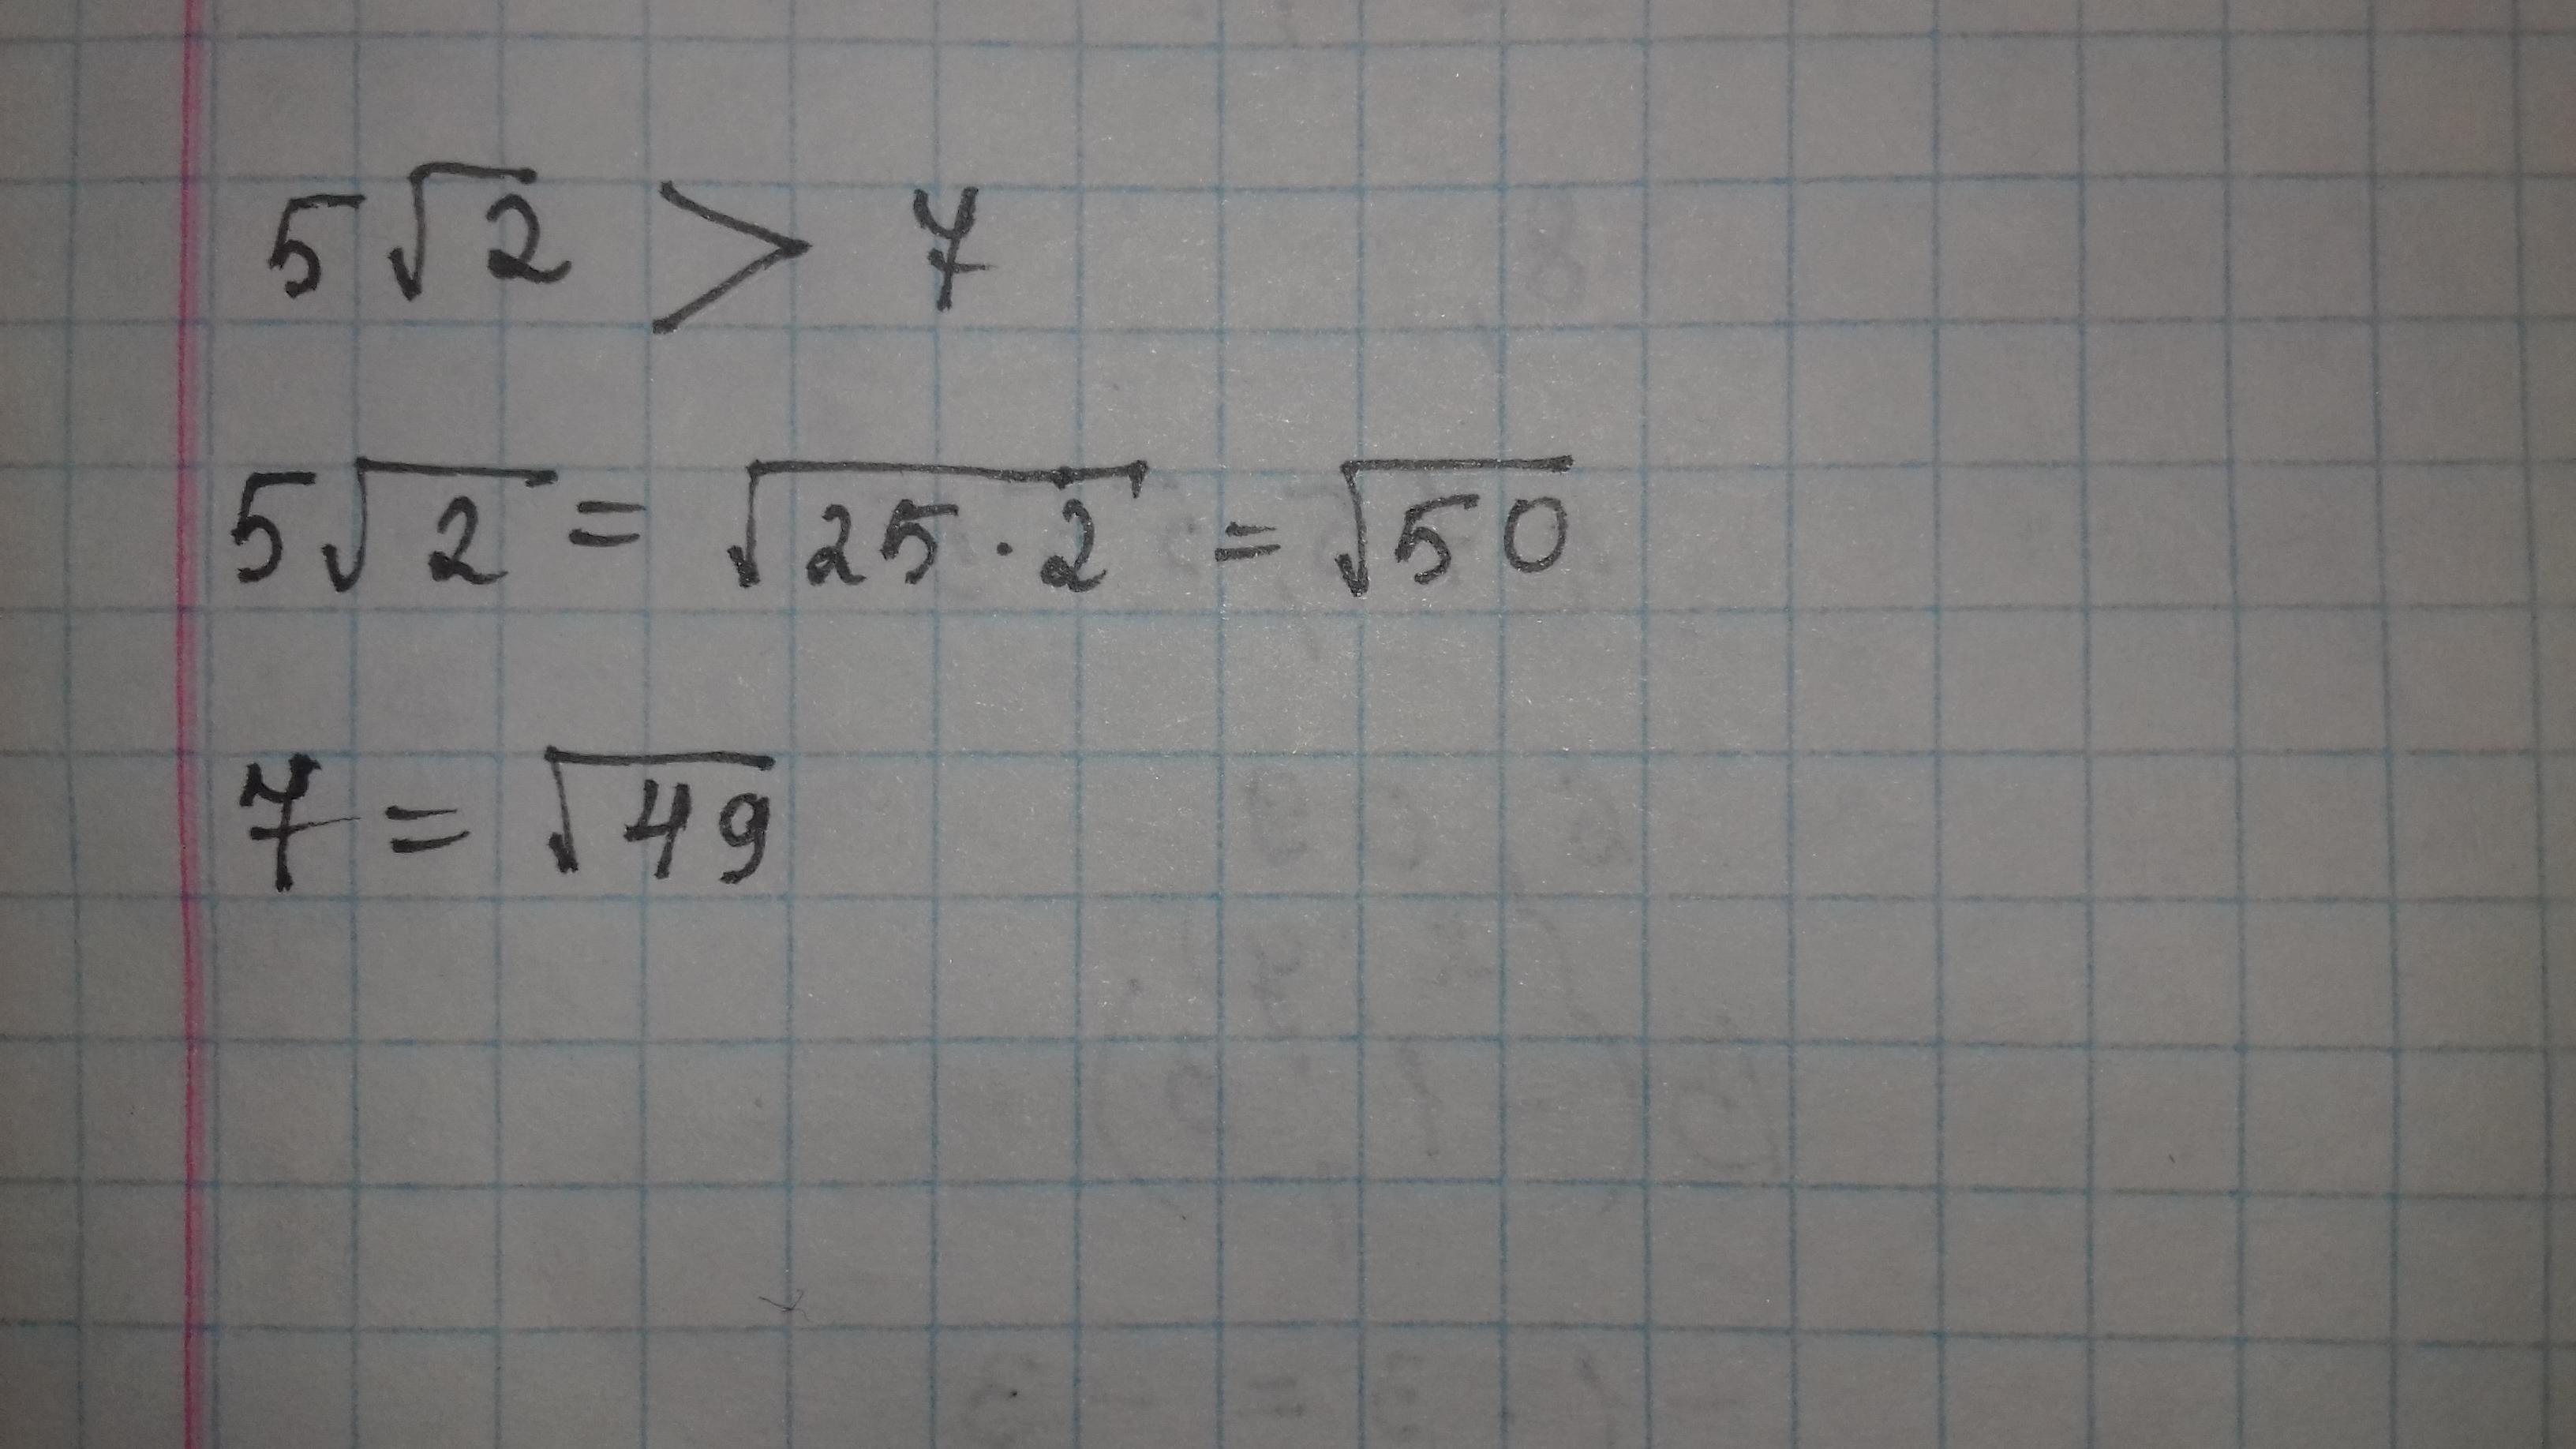 5√2 > 7
5√2 = √25·2 = √50
7 = √49